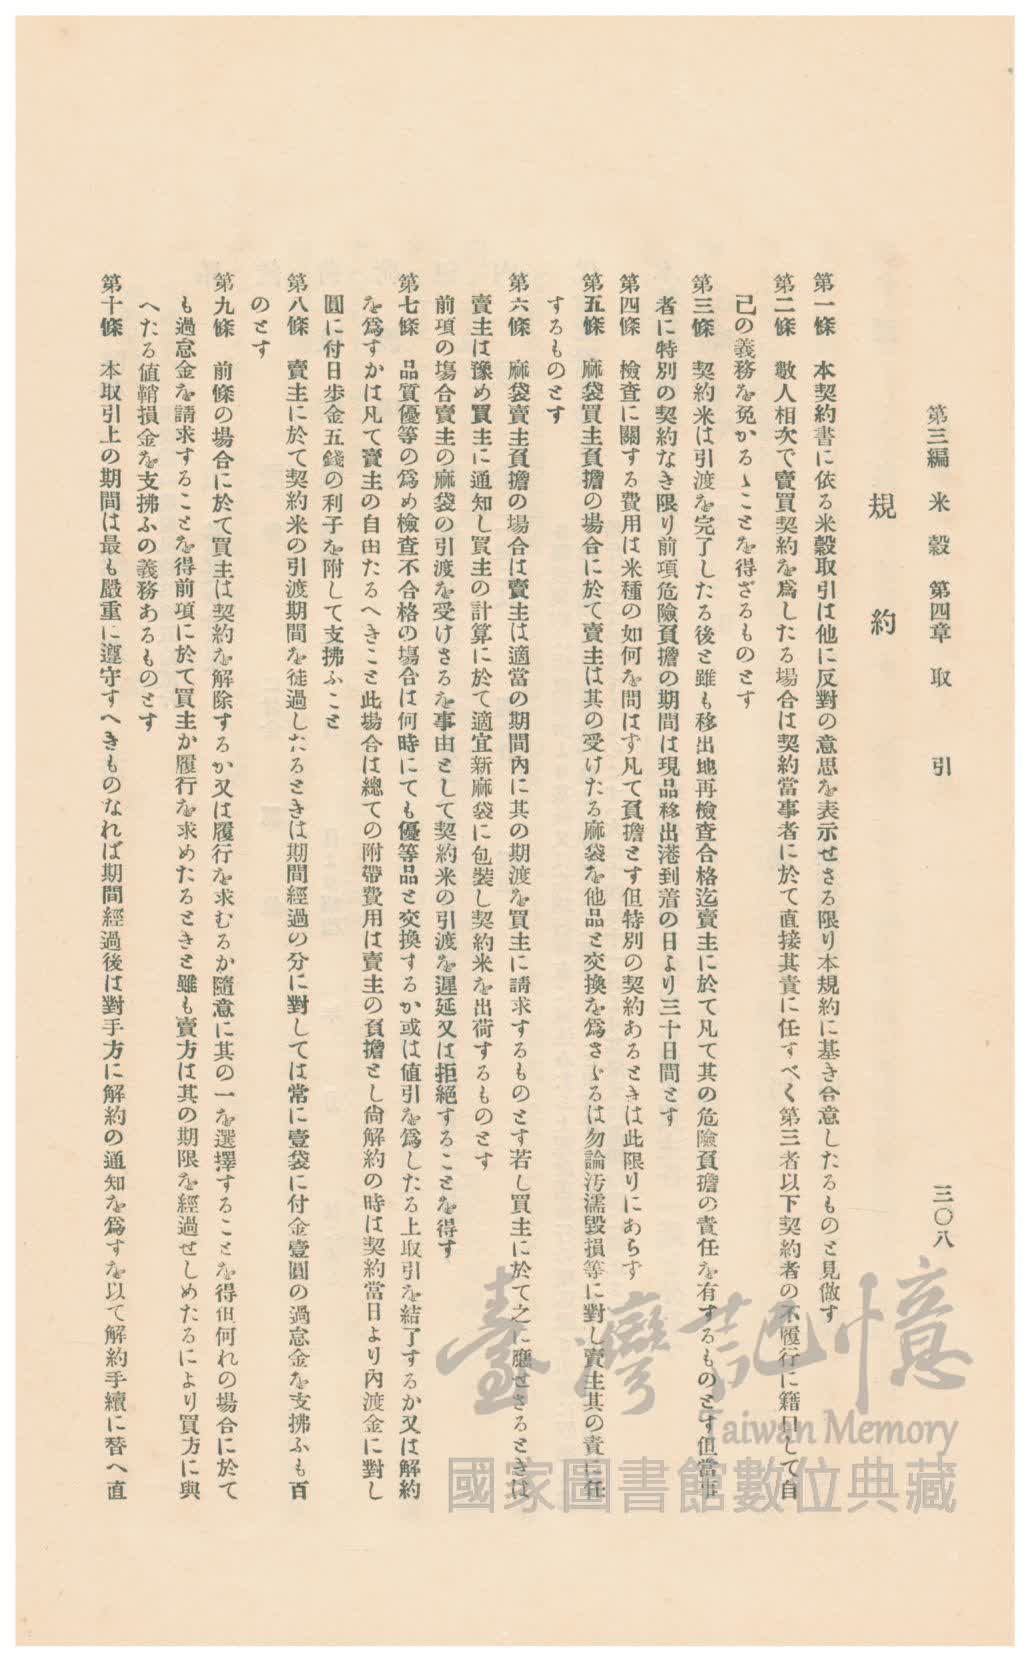 第三編 米穀 第四章 取引
三〇八
規約
第一條 本契約書に依る米穀取引は他に反對の意思を表示せさる限り本規約に基き合意したるものと見做す
第二條 數人相次で賣買契約を爲したる場合は契約當事者に於て直接其責に任すべく第三者以下契約者の不履行に籍口して自
己の義務を免かるゝことを得ざるものとす
第三條 契約米は引渡を完了したる後と雖も移出地再檢查合格迄賣主に於て凡て其の危險負擔の責任を有するものとす但當事
者に特別の契約なき限り前項危險負擔の期間は現品移出港到着の日より三十日間とす
第四條 檢查に關する費用は米種の如何を問はす凡て負擔とす但特別の契約あるときは此限りにあらす
第五條 麻袋買主負擔の場合に於て賣主は其の受けたる麻袋を他品と交換を爲さゞるは勿論汚濡毀損等に對し賣主其の責に任
するものとす
第六條 麻袋賣主負擔の場合は賣主は適當の期間內に其の期渡を買主に請求するものとす若し買主に於て之に應せさるときは
賣主は豫め買主に通知し買主の計算に於て適宜新麻袋に包裝し契約米を出荷するものとす
前項の場合賣主の麻袋の引渡を受けさるを事由として契約米の引渡を遲延又は拒絕することを得す
第七條 品質優等の爲め檢查不合格の場合は何時にても優等品と交換するか或は値引を爲したる上取引を結了するか又は解約
を爲すかは凡て賣主の自由たるへきこと此場合は總ての附帶費用は賣主の負擔とし尙解約の時は契約當日より內渡金に對し
圓に付日步金五錢の利子を附して支拂ふこと
第八條 賣主に於て契約米の引渡期間を徒過したるときは期間經過の分に對しては常に壹袋に付金壹圓の過怠金を支拂ふも百
のとす
第九條 前條の場合に於て買主は契約を解除するか又は履行を求むるか隨意に其の一を選擇することを得但何れの場合にて於て
も過怠金を請求することを得前項に於て買主か履行を求めたるときと雖も賣方は其の期限を經過せしめたるにより買方に與
へたる値鞘損金を支拂ふの義務あるものとす
第十條 本取引上の期間は最も嚴重に遵守すへきものなれば期間經過後は對手方に解約の通知を爲すを以て解約手續に替へ直
臺灣記憶
Taiwan Memory
國家圖書館數位典藏